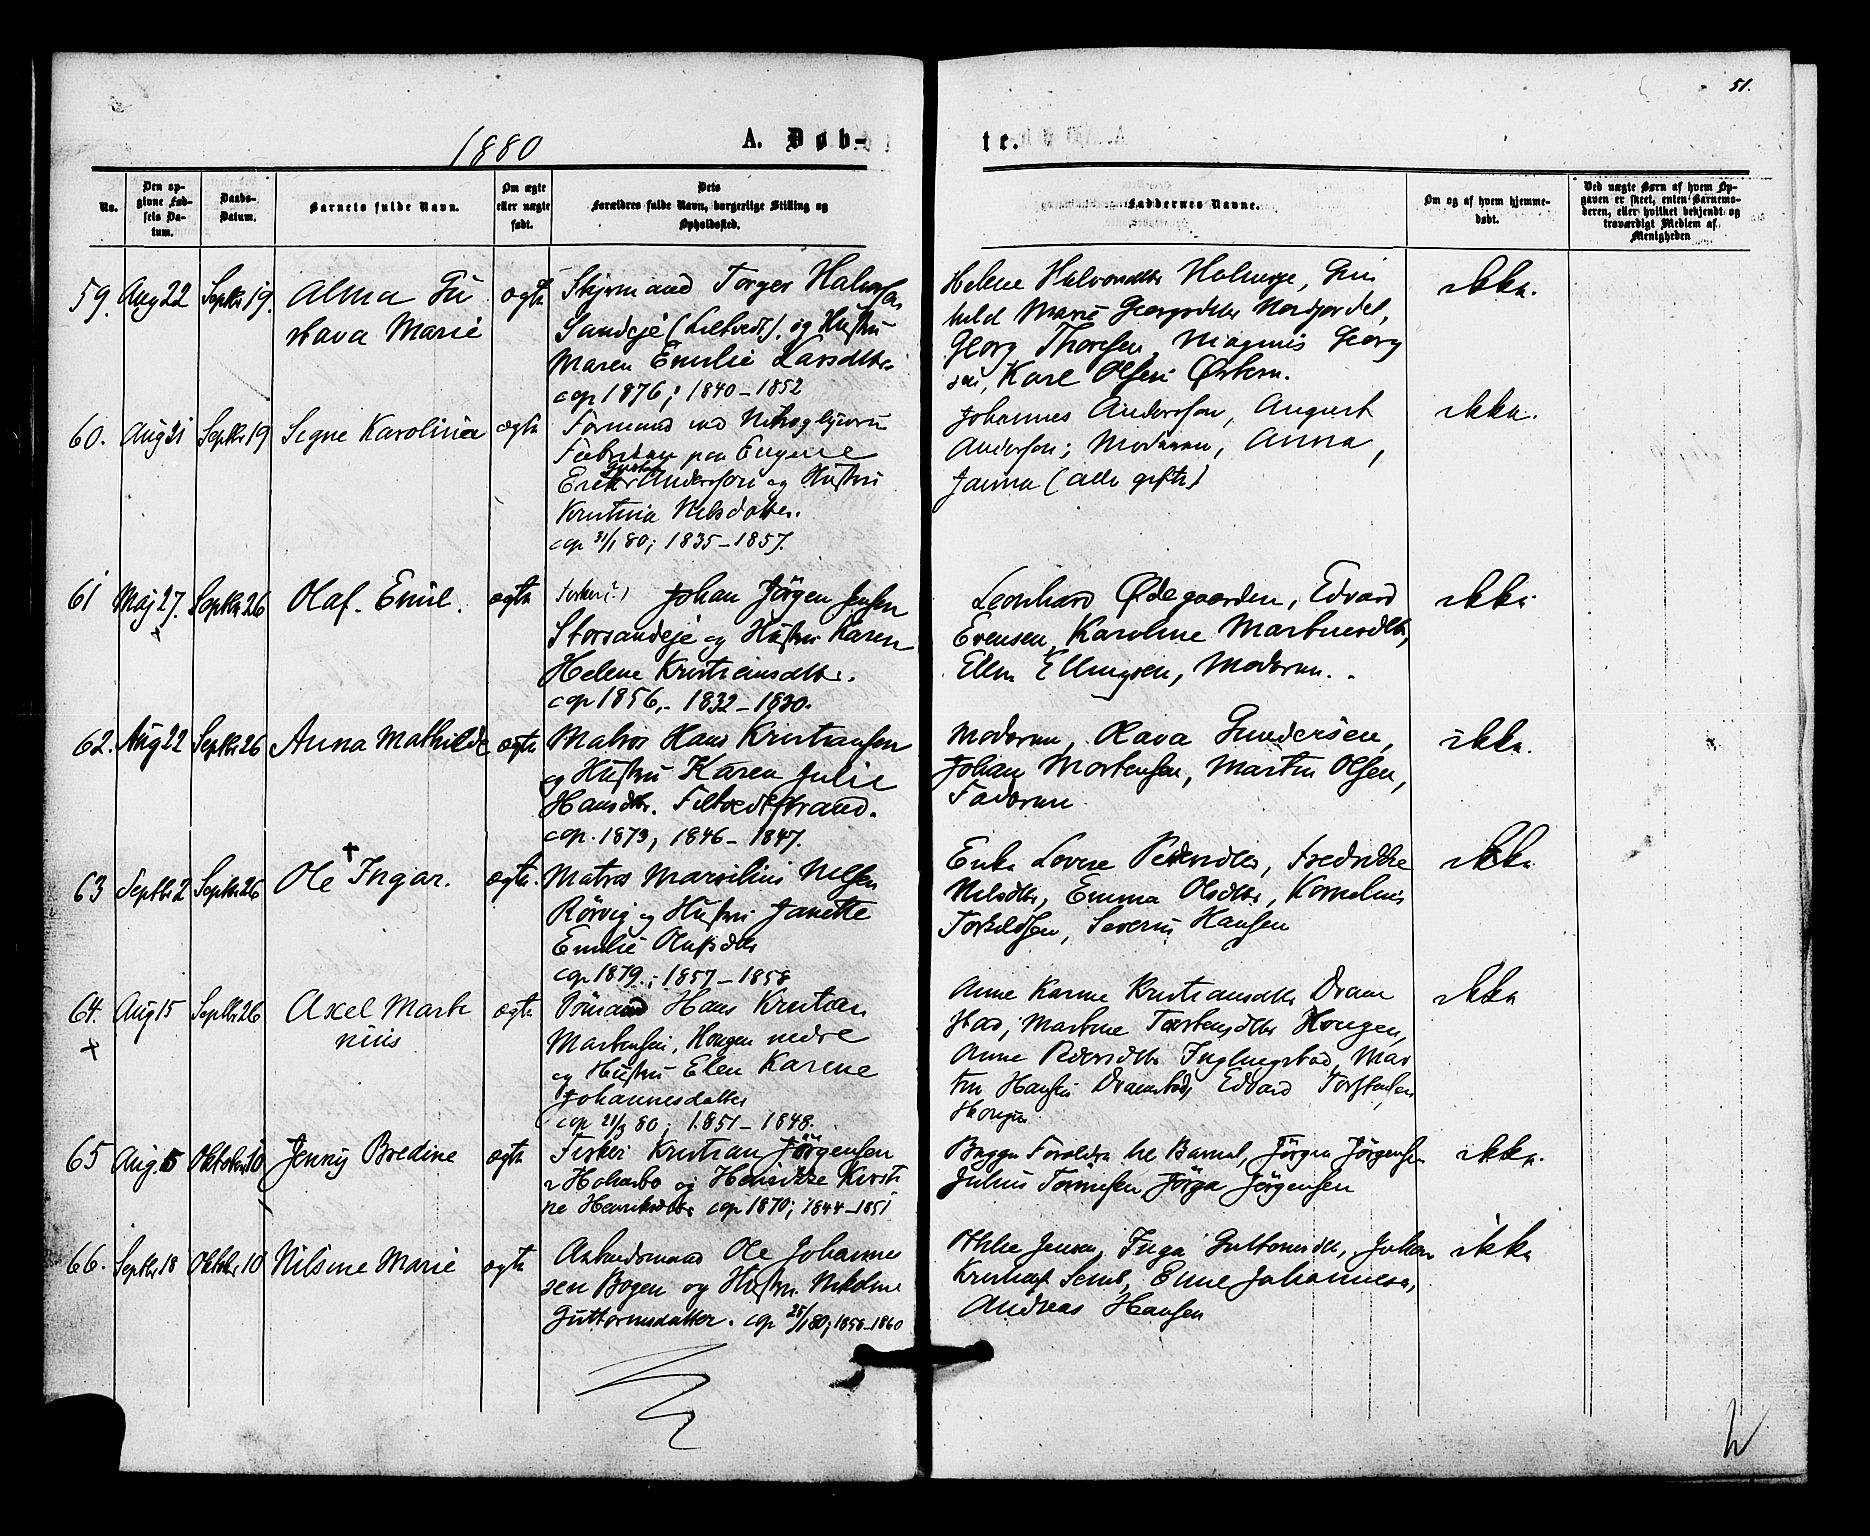 51.
1880
A. Døb-
te.
No.
Den op-
givne Fød-
sels Da-
tum.
Daabs-
Datum.
Barnets fulde Navn.
Om ægte
eller uægte
født.
Dets
Forældres fulde Navn, borgerlige Stilling og
Opholdssted.
Faddernes Navne.
Om og af hvem hjemme-
døbt.
Ved uægte Børn af hvem Op-
gaven er skeet, enten Barnemo-
deren, eller hvilket bekjendt og
troværdigt Medlem af
Menigheden
59. Aug 22 Septbr 19. Alma Gu
stava Marie
ægte
Styrmand Torger Halvorsen
Sandeje (Filtvedt). og Hustru
Maren Emilie Larsdtr.
cop 1876; 1840-1852
Helene Halvorsdtr Holmege, Gun
hild Marie Georgsdtr Nordfordet,
Georg Thoresen, Magnus Georg
sen, Karl Olsen Østern.
ikke.
60. Aug 21 Septbr 19 Signe Karolina
ægte
Formand ved Nitroglycerin
Fabriken paa Engene
Erik Gustaf Anderson og Hustru
Kristina Nilsdotter.
cop 31/1 80; 1835-1857.
Johannes Anderson, August
Anderson; Moderen, Anna,
Janna (alle gifte)
ikke.
61 Maj 27. Septbr 26 Olaf Emil.
ægte
Johan Jörgen Jensen
Storsandeje og Hustru Karen
Helene Kristiansdtr.
cop 1856, 1832-1830.
Leonhard Ødegaarden, Edvard
Evensen, Karoline Martinsdtr,
Ellen Ellingsen, Moderen.
ikke
62. Aug 22 Septbr 26 Anna Mathilde
ægte
Matros Hans Kristiansen
og Hustru Karen Julie
Hansdtr. Filtvedtstrand.
cop. 1873; 1846-1847.
Moderen, Olava Gundersen,
Johan Mortensen, Martin Olsen,
Faderen
ikke.
63 Septbr 2 Septbr 26 Ole Ingar.
ægte.
Matros Marsilius Nilsen
Rörvig og Hustru Janette
Emilie Olufsdtr
cop 1879; 1857-1858
Erika Lovise Pedersdtr, Fredrikke
Nilsdtr, Emma Olsdtr, Kornelius
Torkildsen, Severin Hansen
ikke
64. Aug 15 Septbr 26 Axel Marti
nius
ægte
Hans Kristian
Martinsen, Hongen nedre
og Hustru Elen Karine
Johannesdatter
cop 21/3 80; 1851-1848.
Anne Karine Kristiansdtr Dram
stad, Martine Torstensdtr Hongen,
Anne Pedersdtr Inglingstad, Mar
tin Hansen Dramstad, Edvard Torstensen
Hongen
ikke
65 Aug. 5 Oktober 10 Jenny Bredine
ægte
Fisker Kristian Jörgensen
Holmsbo og Henrikke Kirsti
ne Henriksdtr cop 1870; 1844-1851
Begge Forældre til Barnet, Jörgen Jörgensen
Julius Tönnesen, Jörga Jörgensen
ikke.
66. Septbr 18 Oktbr 10 Nilsine Marie
ægte
Arbeidsmand Ole Johanne
sen Bogen og Hustru Nikoline
Guttormsdatter. cop 25/1 80; 1858-1860
Othlie Jensen, Inga Guttormsdtr, Johan
Kristian, Emil Johannesen,
Andreas Hansen
ikke